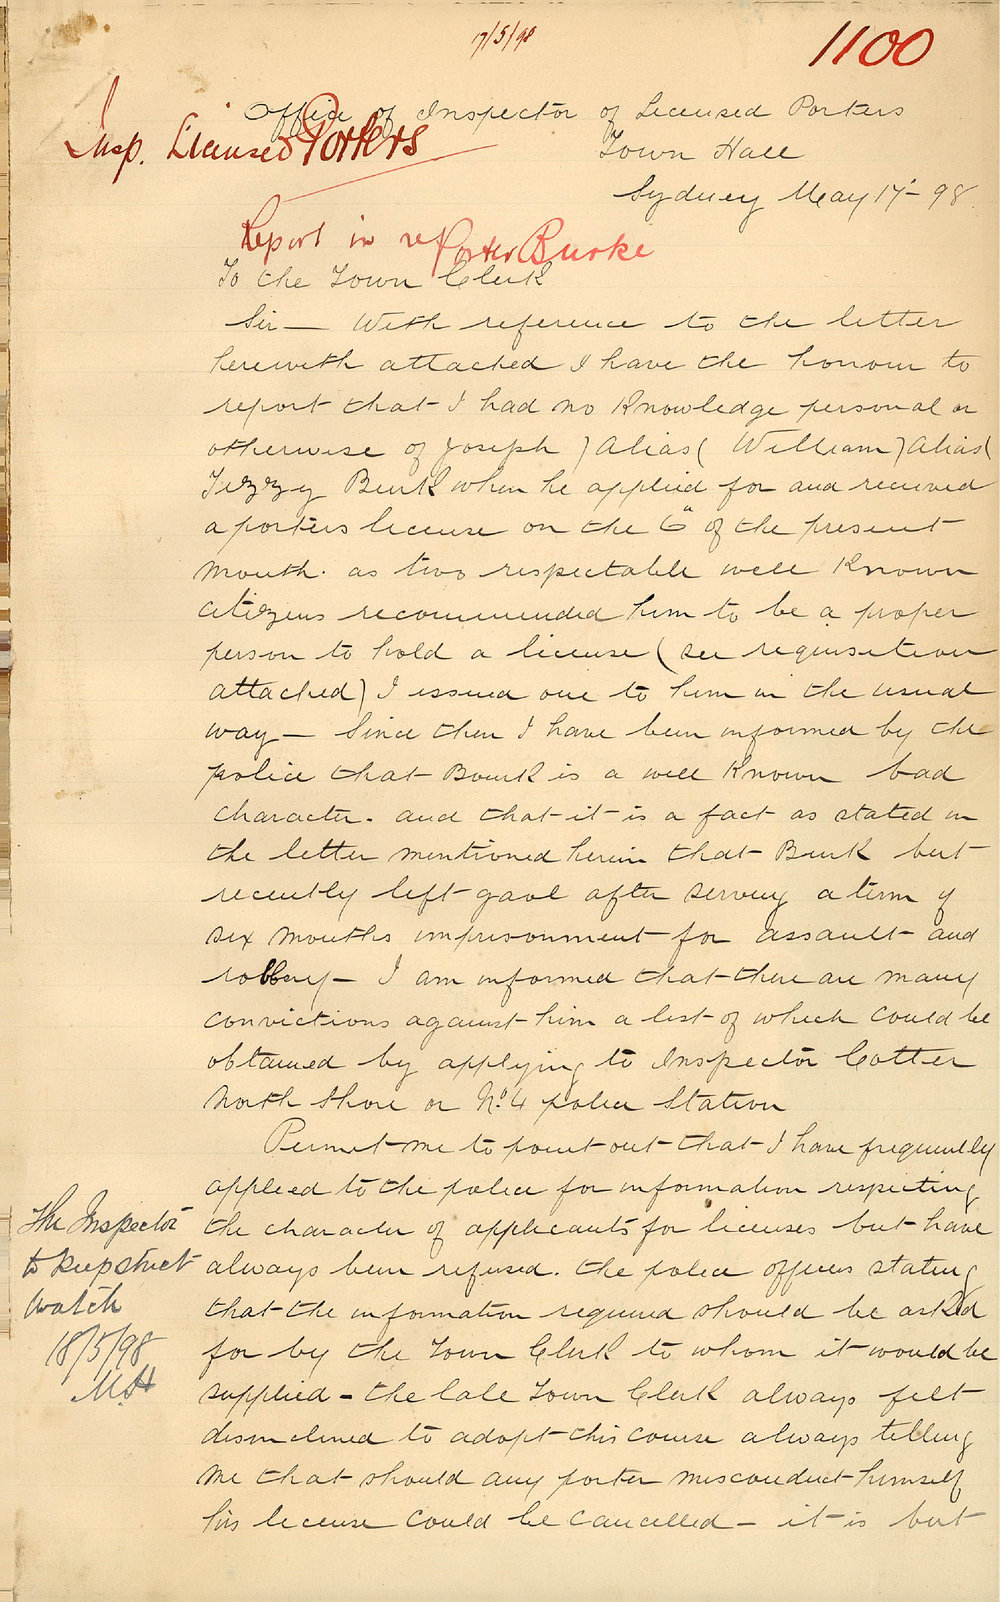 17/5/98
1100
Office of Inspector of Licensed Porters
Insp. Licensed Porters
Town Hall
Sydney May 17 - 98
Report in re Porter Burke
To the Town Clerk
Sir — With reference to the letter
herewith attached I have the honour to
report that I had no knowledge personal or
otherwise of Joseph ) Alias ( William ) Alias (
Tizzy Burk when he applied for and received
a porters license on the 6th of the present
month. as two respectable well known
citizens recommended him to be a proper
person to hold a license ( see requisition
attached ) I issued one to him in the usual
way — Since then I have been informed by the
police that Bourk is a well known bad
character. and that it is a fact as stated in
the letter mentioned herein that Burk but
recently left gaol after serving a term of
six months imprisonment for assault and
robbery — I am informed that there are many
convictions against him a list of which could be
obtained by applying to Inspector Cotter
North Shore or No. 4 police Station
Permit me to point out that I have frequently
applied to the police for information respecting
the character of applicants for licenses but have
always been refused. the police officers stating
that the information required should be asked
for by the Town Clerk to whom it would be
supplied — the late Town Clerk always felt
disinclined to adopt this course always telling
me that should any porter misconduct himself
his license could be cancelled — it is but
The Inspector
to keep strict
watch
18/5/98